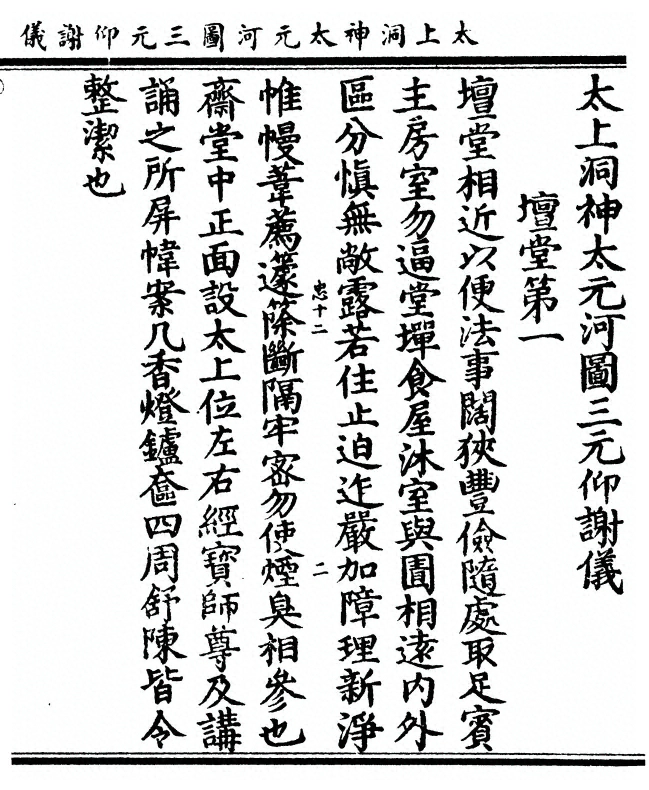 太上洞神太元河圖三元仰謝儀
太上洞神太元河圖三元仰謝儀
壇堂第一
壇堂相近以便法事闊狹豐儉隨處取足賓
主房室勿逼堂墠食屋沐室與圊相遠內外
區分慎無敞露若住止迫迮嚴加障理新淨
忠十二
二
帷幔葦薦籧篨斷隔牢密勿使煙臭相參也
齋堂中正面設太上位左右經寶師尊及講
誦之所屏幃案几香燈鑪奩四周舒陳皆令
整潔也